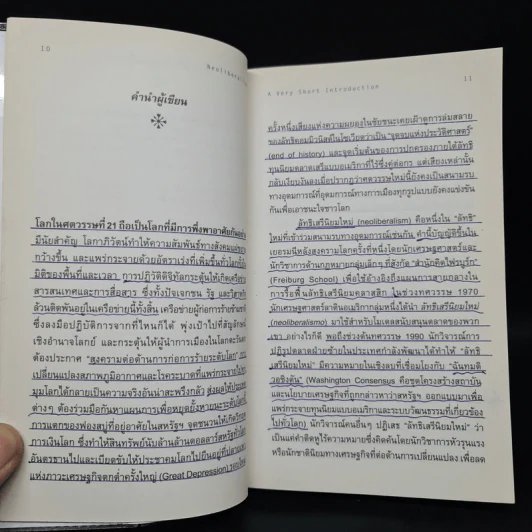 10
Neoliberalis
คำนำผู้เขียน
โลกในศตวรรษที่ 21 ถือเป็นโลกที่มีการพึ่งพาอาศัยกันอย่าง
มีนัยสำคัญ โลกาภิวัตน์ทำให้ความสัมพันธ์ทางสังคมแผ่ขยาย
กว้างขึ้น และแพร่กระจายด้วยอัตราเร่งที่เพิ่มขึ้นทั้งใน
มิติของพื้นที่และเวลา การปฏิวัติดิจิทัลกระตุ้นให้เกิดเครือข่าย
สารสนเทศและการสื่อสาร ซึ่งทั้งปัจเจกชน รัฐ และวิสาหกิจ
ล้วนติดพันอยู่ในเครือข่ายนี้ทั้งสิ้น เครือข่ายผู้ก่อการร้ายข้าม
ซึ่งลงมือปฏิบัติการจากที่ไหนก็ได้ พุ่งเป้าไปที่สัญลักษณ์
เชิงอำนาจโลกย์ และกระตุ้นให้ผู้นำการเมืองในโลกตะวันตก
ต้องประกาศ "สงครามต่อต้านการก่อการร้ายระดับโลก" การ
เปลี่ยนแปลงสภาพภูมิอากาศและโรคระบาดที่แพร่กระจายไป
มุมโลกได้กลายเป็นความจริงอันน่าสะพรึงกลัว ส่งผลให้ประเทศ
ต่างๆ ต้องร่วมมือกันหาแผนการเพื่อหยุดยั้งหายนะระดับโลก
การแตกของฟองสบู่ที่อยู่อาศัยในสหรัฐฯ จุดชนวนให้เกิดวิกฤต
การเงินโลก ซึ่งทำให้สินทรัพย์นับล้านล้านดอลลาร์สหรัฐ
อันตรธานไปและเบียดขับให้ประชาคมโลกไปยืนอยู่ที่
แห่งภาวะเศรษฐกิจตกต่ำครั้งใหญ่ (Great Depression)
A Very Short Introduction
11
ครั้งหนึ่งเสียงแห่งความผยองในชัยชนะเคยเฝ้าดูการล่มสลาย
ของลัทธิคอมมิวนิสต์ในโซเวียตว่าเป็น "จุดจบแห่งประวัติศาสตร์"
(end of history) และจุดเริ่มต้นของการปกครองภายใต้ลัทธิ
ทุนนิยมตลาดเสรีแบบอเมริกาที่ไร้ซึ่งคู่ต่อกร แต่เสียงเหล่านั้น
กลับเงียบงันลงเมื่อปรากฏว่าศตวรรษใหม่นี้ยังคงเป็นสนามรบ
ทางอุดมการณ์ที่อุดมการณ์ทางการเมืองทุกรูปแบบยังคงแข่งขัน
กันเพื่อเอาชนะใจชาวโลก
ลัทธิเสรีนิยมใหม่ (neoliberalism) คือหนึ่งใน "ลัทธิ"
ใหม่ที่เข้าร่วมสนามรบทางอุดมการณ์เช่นกัน คำนี้บัญญัติขึ้นใน
เยอรมนีหลังสงครามโลกครั้งที่หนึ่งโดยนักเศรษฐศาสตร์และ
นักวิชาการด้านกฎหมายกลุ่มเล็กๆ ที่สังกัด "สำนักคิดไฟรบูร์ก"
(Freiburg School) เพื่อใช้อ้างอิงถึงแผนการสายกลางใน
การรื้อฟื้นลัทธิเสรีนิยมคลาสสิก ในช่วงทศวรรษ 1970
นักเศรษฐศาสตร์ลาตินอเมริกากลุ่มหนึ่งได้นำ ลัทธิเสรีนิยมใหม่
(neoliberalismo) มาใช้สำหรับโมเดลสนับสนุนตลาดของพวก
เขา อย่างไรก็ดี พอถึงช่วงต้นทศวรรษ 1990 นักวิจารณ์การ
ปฏิรูปตลาดฝ่ายซ้ายในประเทศกำลังพัฒนาได้ทำให้ "ลัทธิ
เสรีนิยมใหม่" มีความหมายในเชิงลบที่เชื่อมโยงกับ "ฉันทมติ
วอชิงตัน" (Washington Consensus คือชุดโครงสร้างสถาบัน
และนโยบายเศรษฐกิจที่ถูกกล่าวหาว่าสหรัฐฯ ออกแบบมาเพื่อ
แพร่กระจายทุนนิยมแบบอเมริกาและระบบวัฒนธรรมที่เกี่ยวข้อง
ไปทั่วโลก) นักวิจารณ์คนอื่นๆ ปฏิเสธ "ลัทธิเสรีนิยมใหม่" ว่า
เป็นแค่คำติดหูไร้ความหมายซึ่งคิดค้นโดยนักวิชาการหัวรุนแรง
หรือนักชาตินิยมทางเศรษฐกิจที่ต่อต้านการเปลี่ยนแปลง เพื่อลด